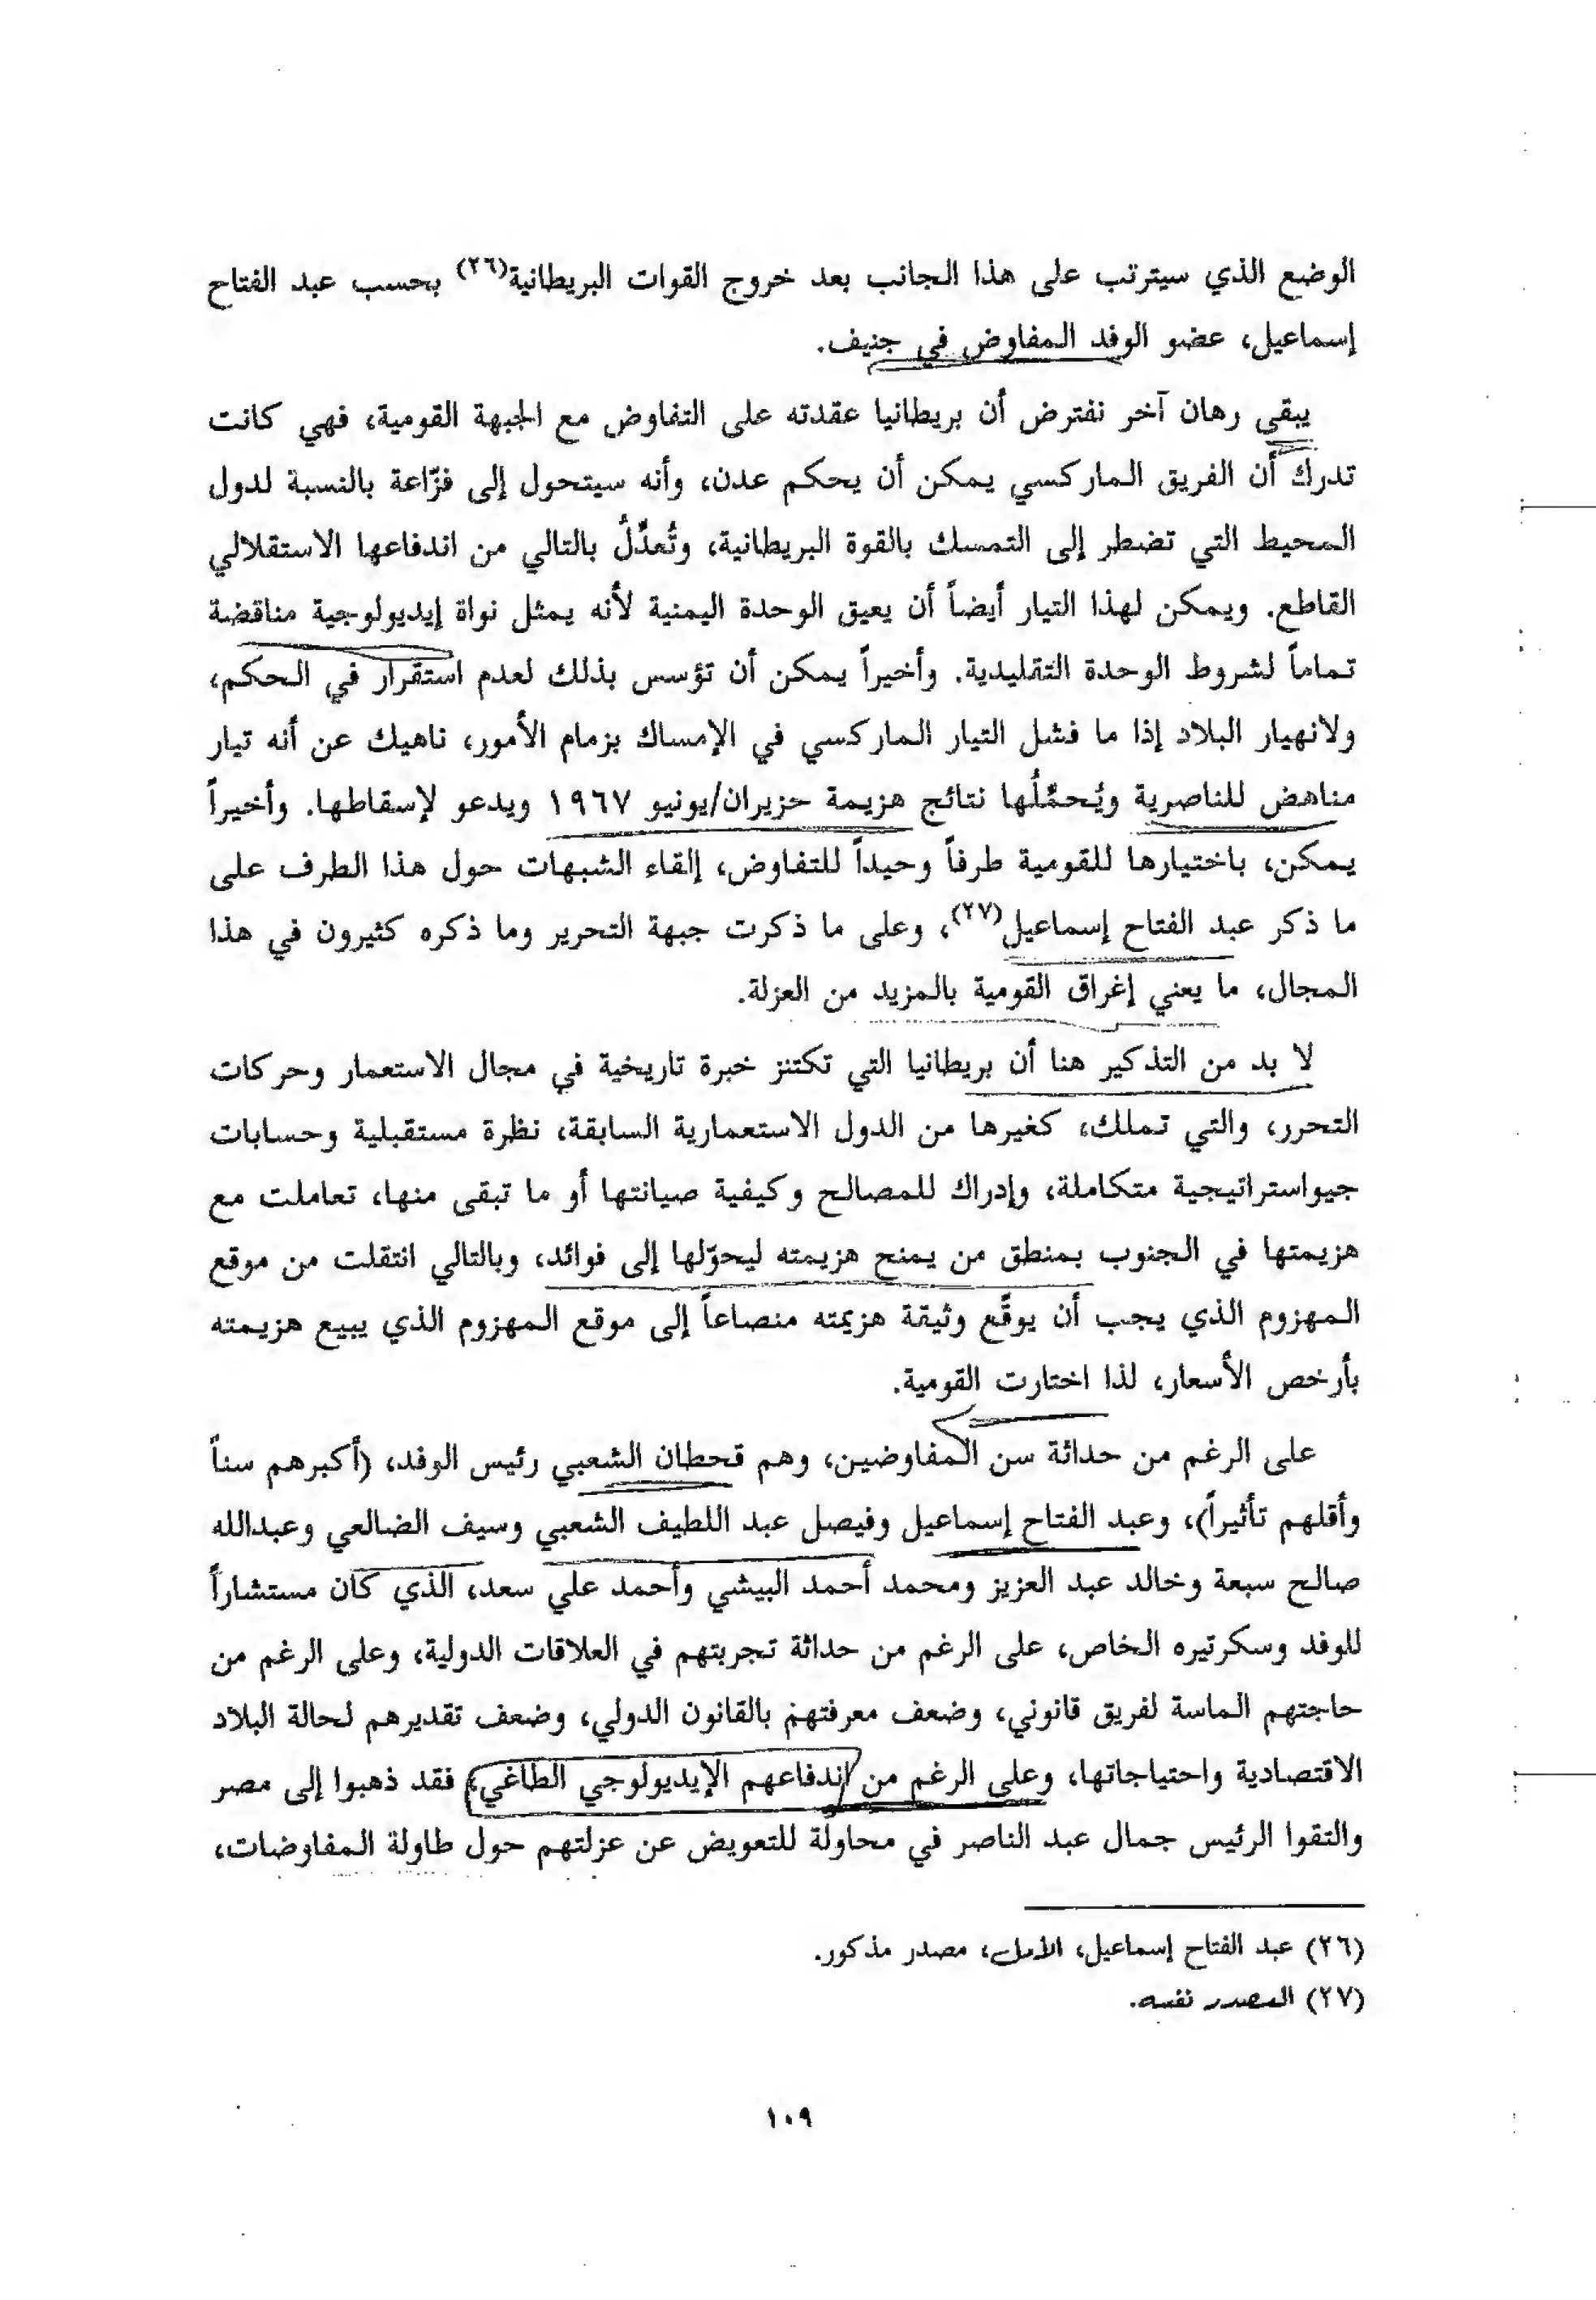 الوضع الذي سيترتب على هذا الجانب بعد خروج القوات البريطانية(٢٦) بحسب عبد الفتاح
إسماعيل، عضو الوفد المفاوض في جنيف.
يبقى رهان آخر نفترض أن بريطانيا عقدته على التفاوض مع الجبهة القومية، فهي كانت
تدرك أن الفريق الماركسي يمكن أن يحكم عدن، وأنه سيتحول إلى فزّاعة بالنسبة لدول
المحيط التي تضطر إلى التمسك بالقوة البريطانية، وتُعدِّلُ بالتالي من اندفاعها الاستقلالي
القاطع. ويمكن لهذا التيار أيضاً أن يعيق الوحدة اليمنية لأنه يمثل نواة إيديولوجية مناقضة
تماماً لشروط الوحدة التقليدية. وأخيراً يمكن أن تؤسس بذلك لعدم استقرار في الحكم،
ولانهيار البلاد إذا ما فشل التيار الماركسي في الإمساك بزمام الأمور، ناهيك عن أنه تيار
مناهض للناصرية ويُحمِّلُها نتائج هزيمة حزيران/يونيو ١٩٦٧ ويدعو لإسقاطها. وأخيراً
يمكن، باختيارها للقومية طرفاً وحيداً للتفاوض، إلقاء الشبهات حول هذا الطرف على
ما ذكر عبد الفتاح إسماعيل(٢٧)، وعلى ما ذكرت جبهة التحرير وما ذكره كثيرون في هذا
المجال، ما يعني إغراق القومية بالمزيد من العزلة.
لا بد من التذكير هنا أن بريطانيا التي تكتنز خبرة تاريخية في مجال الاستعمار وحركات
التحرر، والتي تملك، كغيرها من الدول الاستعمارية السابقة، نظرة مستقبلية وحسابات
جيواستراتيجية متكاملة، وإدراك للمصالح وكيفية صيانتها أو ما تبقى منها، تعاملت مع
هزيمتها في الجنوب بمنطق من يمنح هزيمته ليحوّلها إلى فوائد، وبالتالي انتقلت من موقع
المهزوم الذي يجب أن يوقِّع وثيقة هزيمته منصاعاً إلى موقع المهزوم الذي يبيع هزيمته
بأرخص الأسعار، لذا اختارت القومية.
على الرغم من حداثة سن المفاوضين، وهم قحطان الشعبي رئيس الوفد، (أكبرهم سناً
وأقلهم تأثيراً)، وعبد الفتاح إسماعيل وفيصل عبد اللطيف الشعبي وسيف الضالعي وعبدالله
صالح سبعة وخالد عبد العزيز ومحمد أحمد البيشي وأحمد علي سعد، الذي كان مستشاراً
للوفد وسكرتيره الخاص، على الرغم من حداثة تجربتهم في العلاقات الدولية، وعلى الرغم من
حاجتهم الماسة لفريق قانوني، وضعف معرفتهم بالقانون الدولي، وضعف تقديرهم لحالة البلاد
الاقتصادية واحتياجاتها، وعلى الرغم من اندفاعهم الإيديولوجي الطاغي، فقد ذهبوا إلى مصر
والتقوا الرئيس جمال عبد الناصر في محاولة للتعويض عن عزلتهم حول طاولة المفاوضات،
(٢٦) عبد الفتاح إسماعيل، الأمل، مصدر مذكور.
(٢٧) المصدر نفسه.
١٠٩